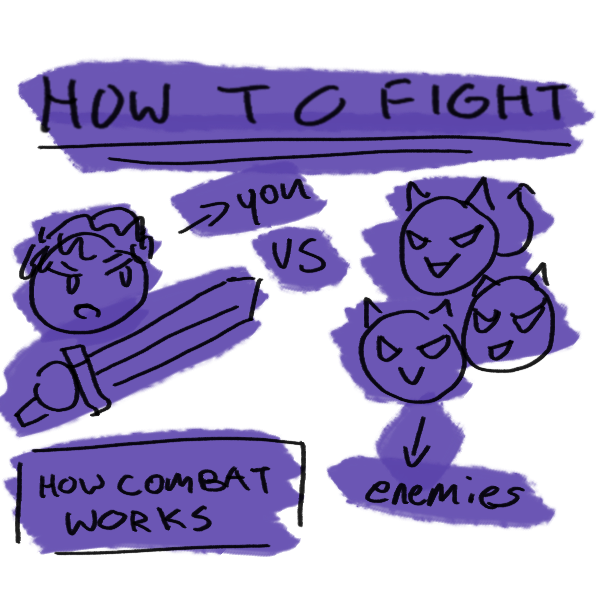 HOW TO FIGHT
you
VS
enemies
HOW COMBAT
WORKS